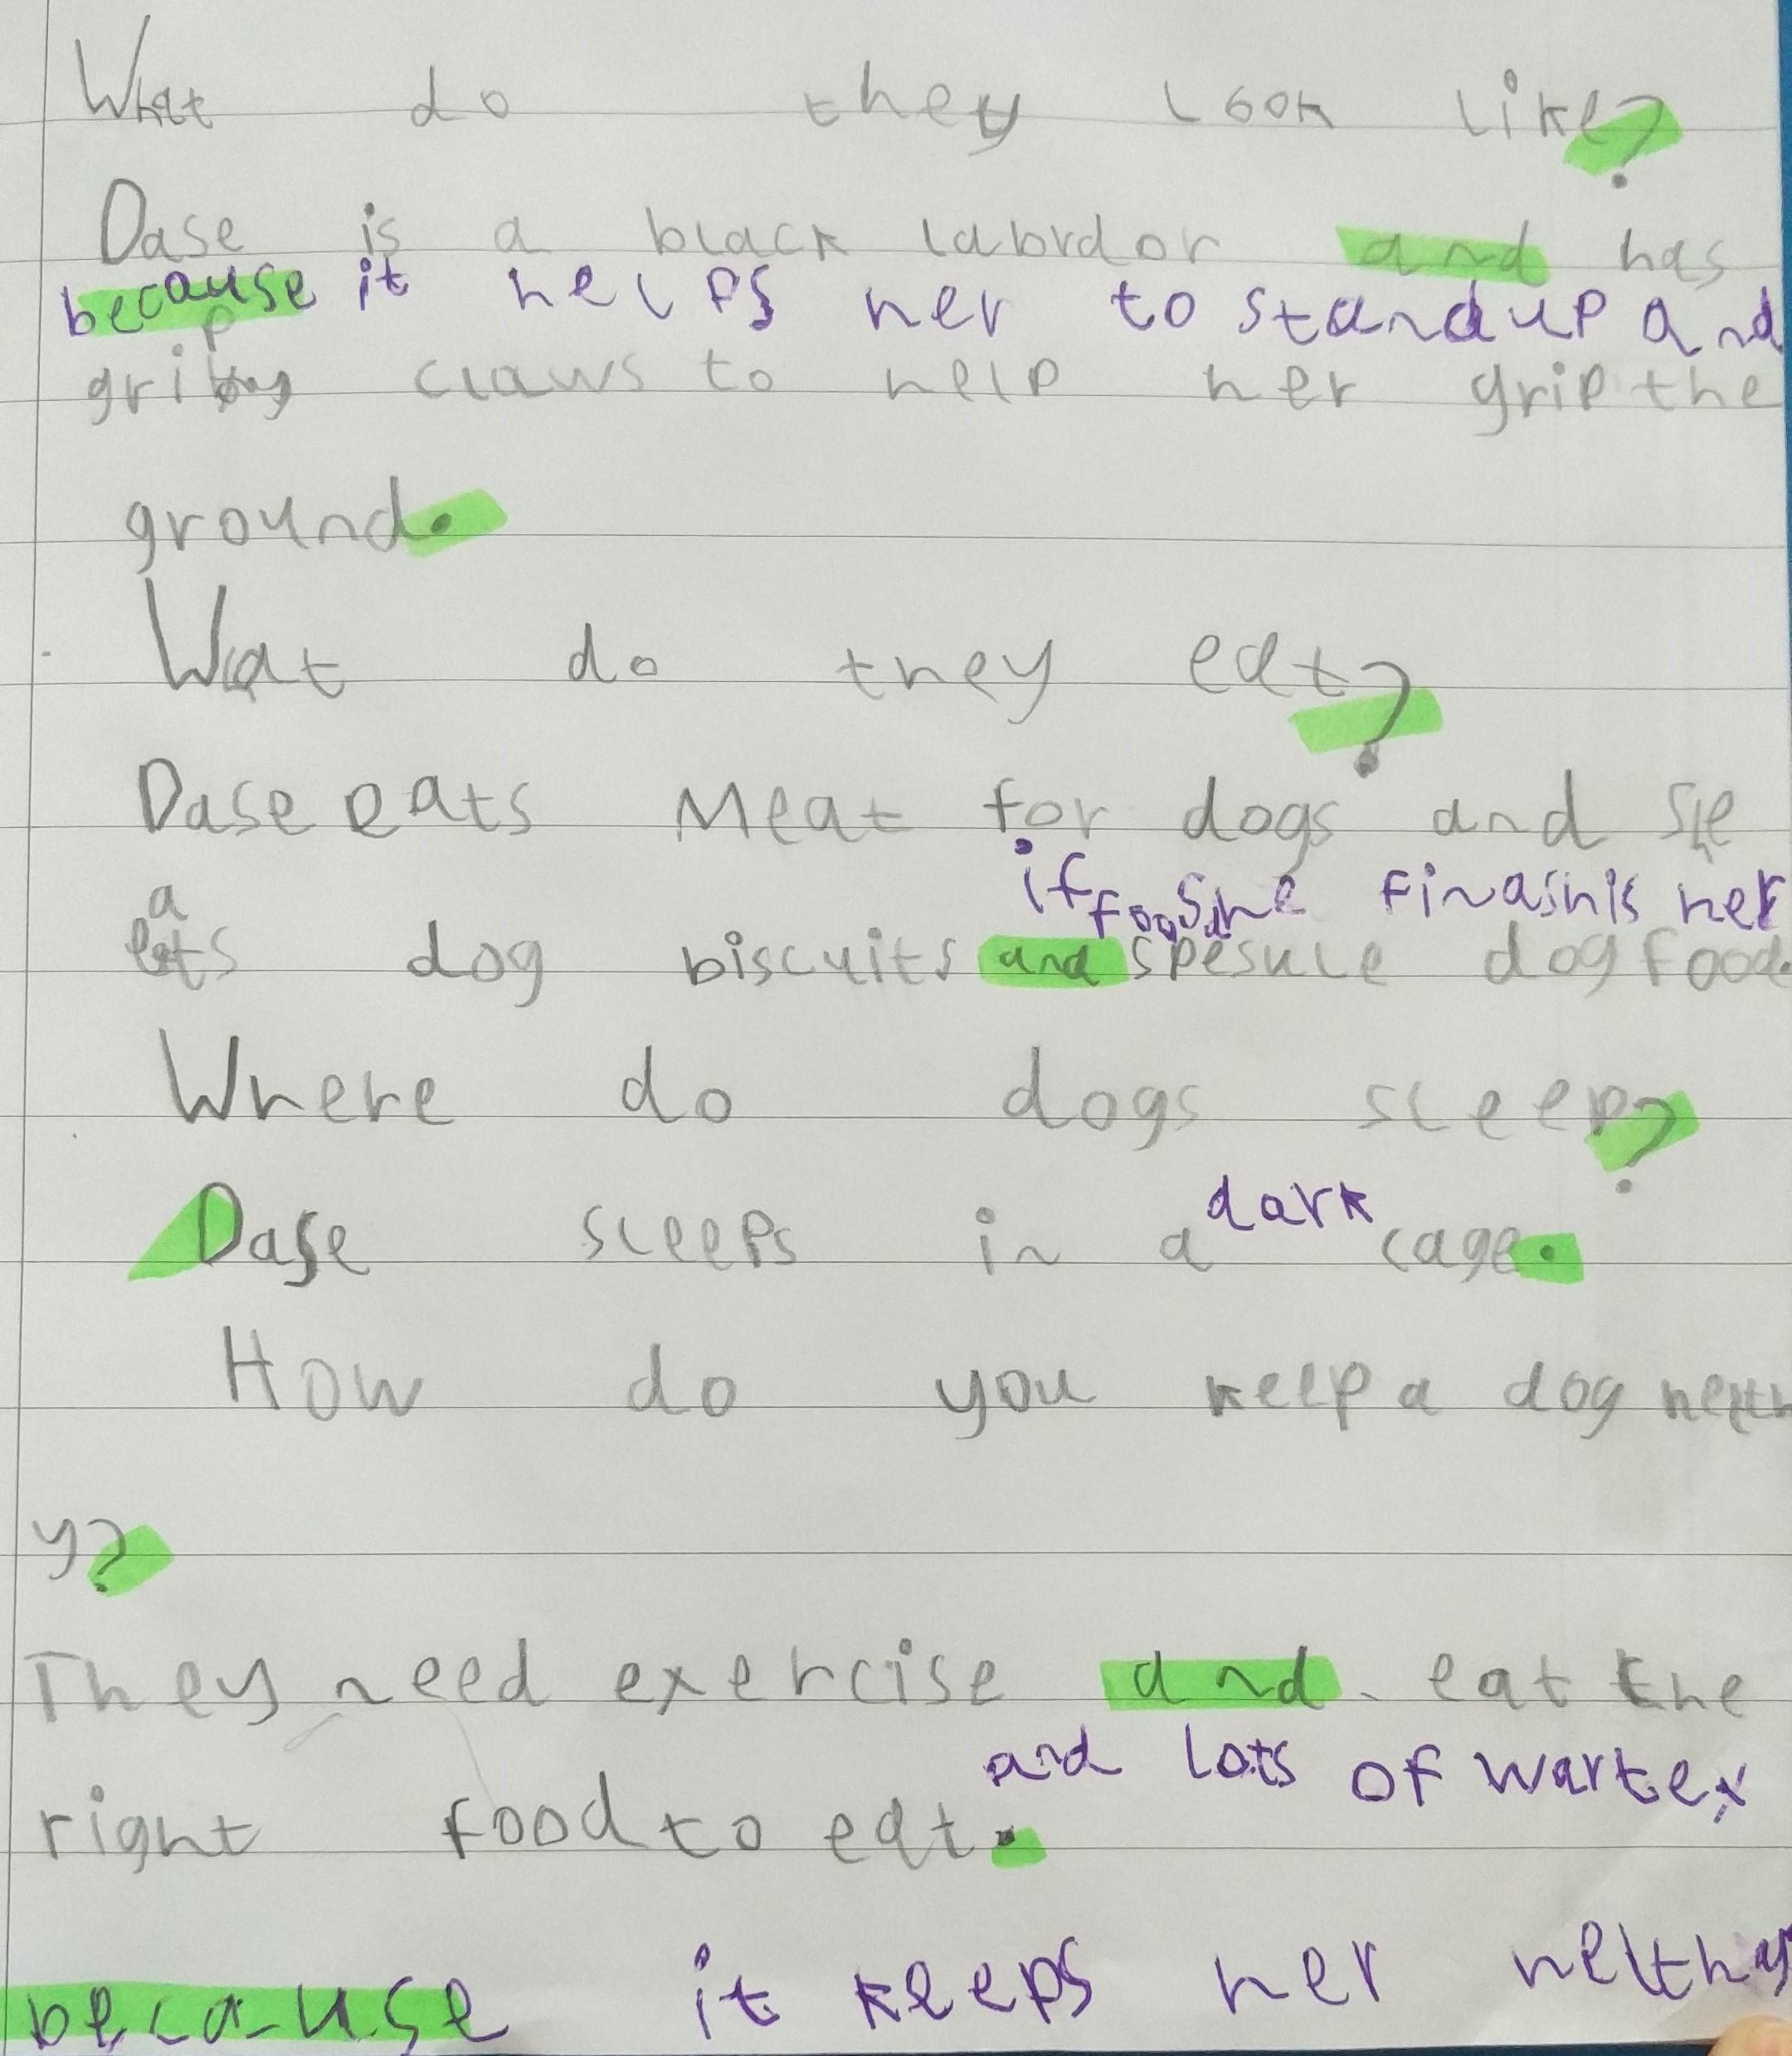 What do they look like?
Dase is a black labrdor and has
because it helps her to stand up and
p
gri claws to help her grip the
ground.
What do they eat?
Dase eats Meat for dogs and She
if she finashis her
a food
ets dog biscuits and spesule dog food.
Where do dogs sleep?
dark
Dase sleeps in a cage.
How do you keep a dog helth
y?
They need exercise and eat the
and lots of warter
right food to eat.
because it keeps her helthy